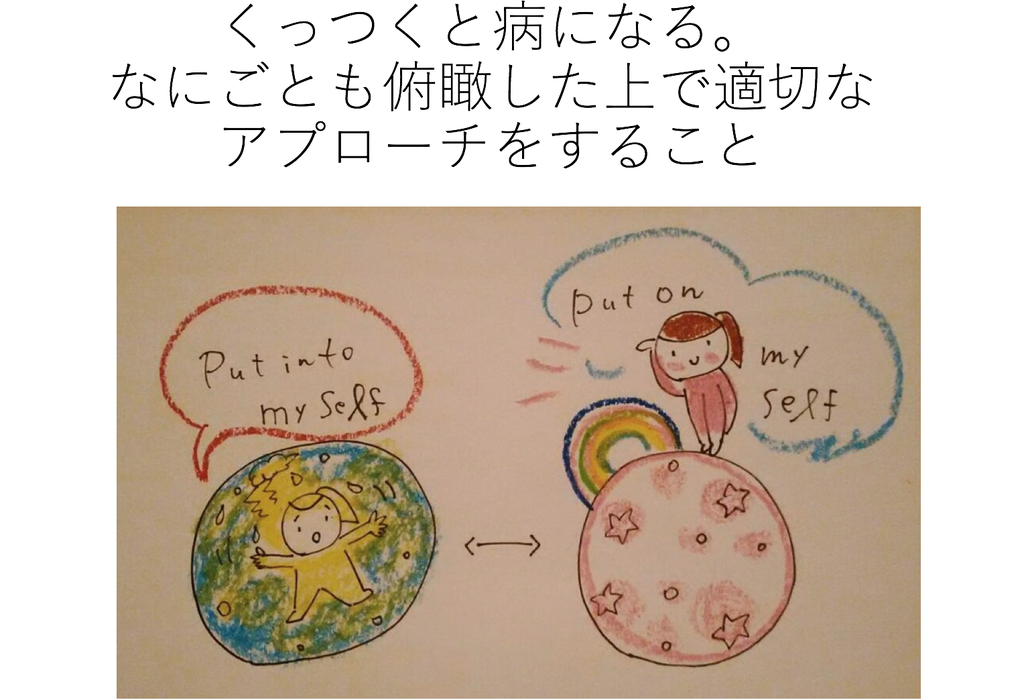 くっつくと病になる。
なにごとも俯瞰した上で適切な
アプローチをすること
Put into
my self
put on
my
self